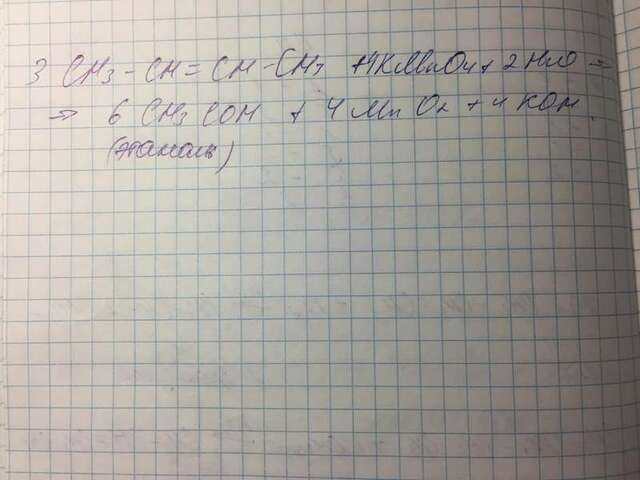 3 CH3 - CH = CH - CH3 + 4KMnO4 + 2H2O →
→ 6 CH3COH + 4MnO2 + 4KOH
(этаналь)